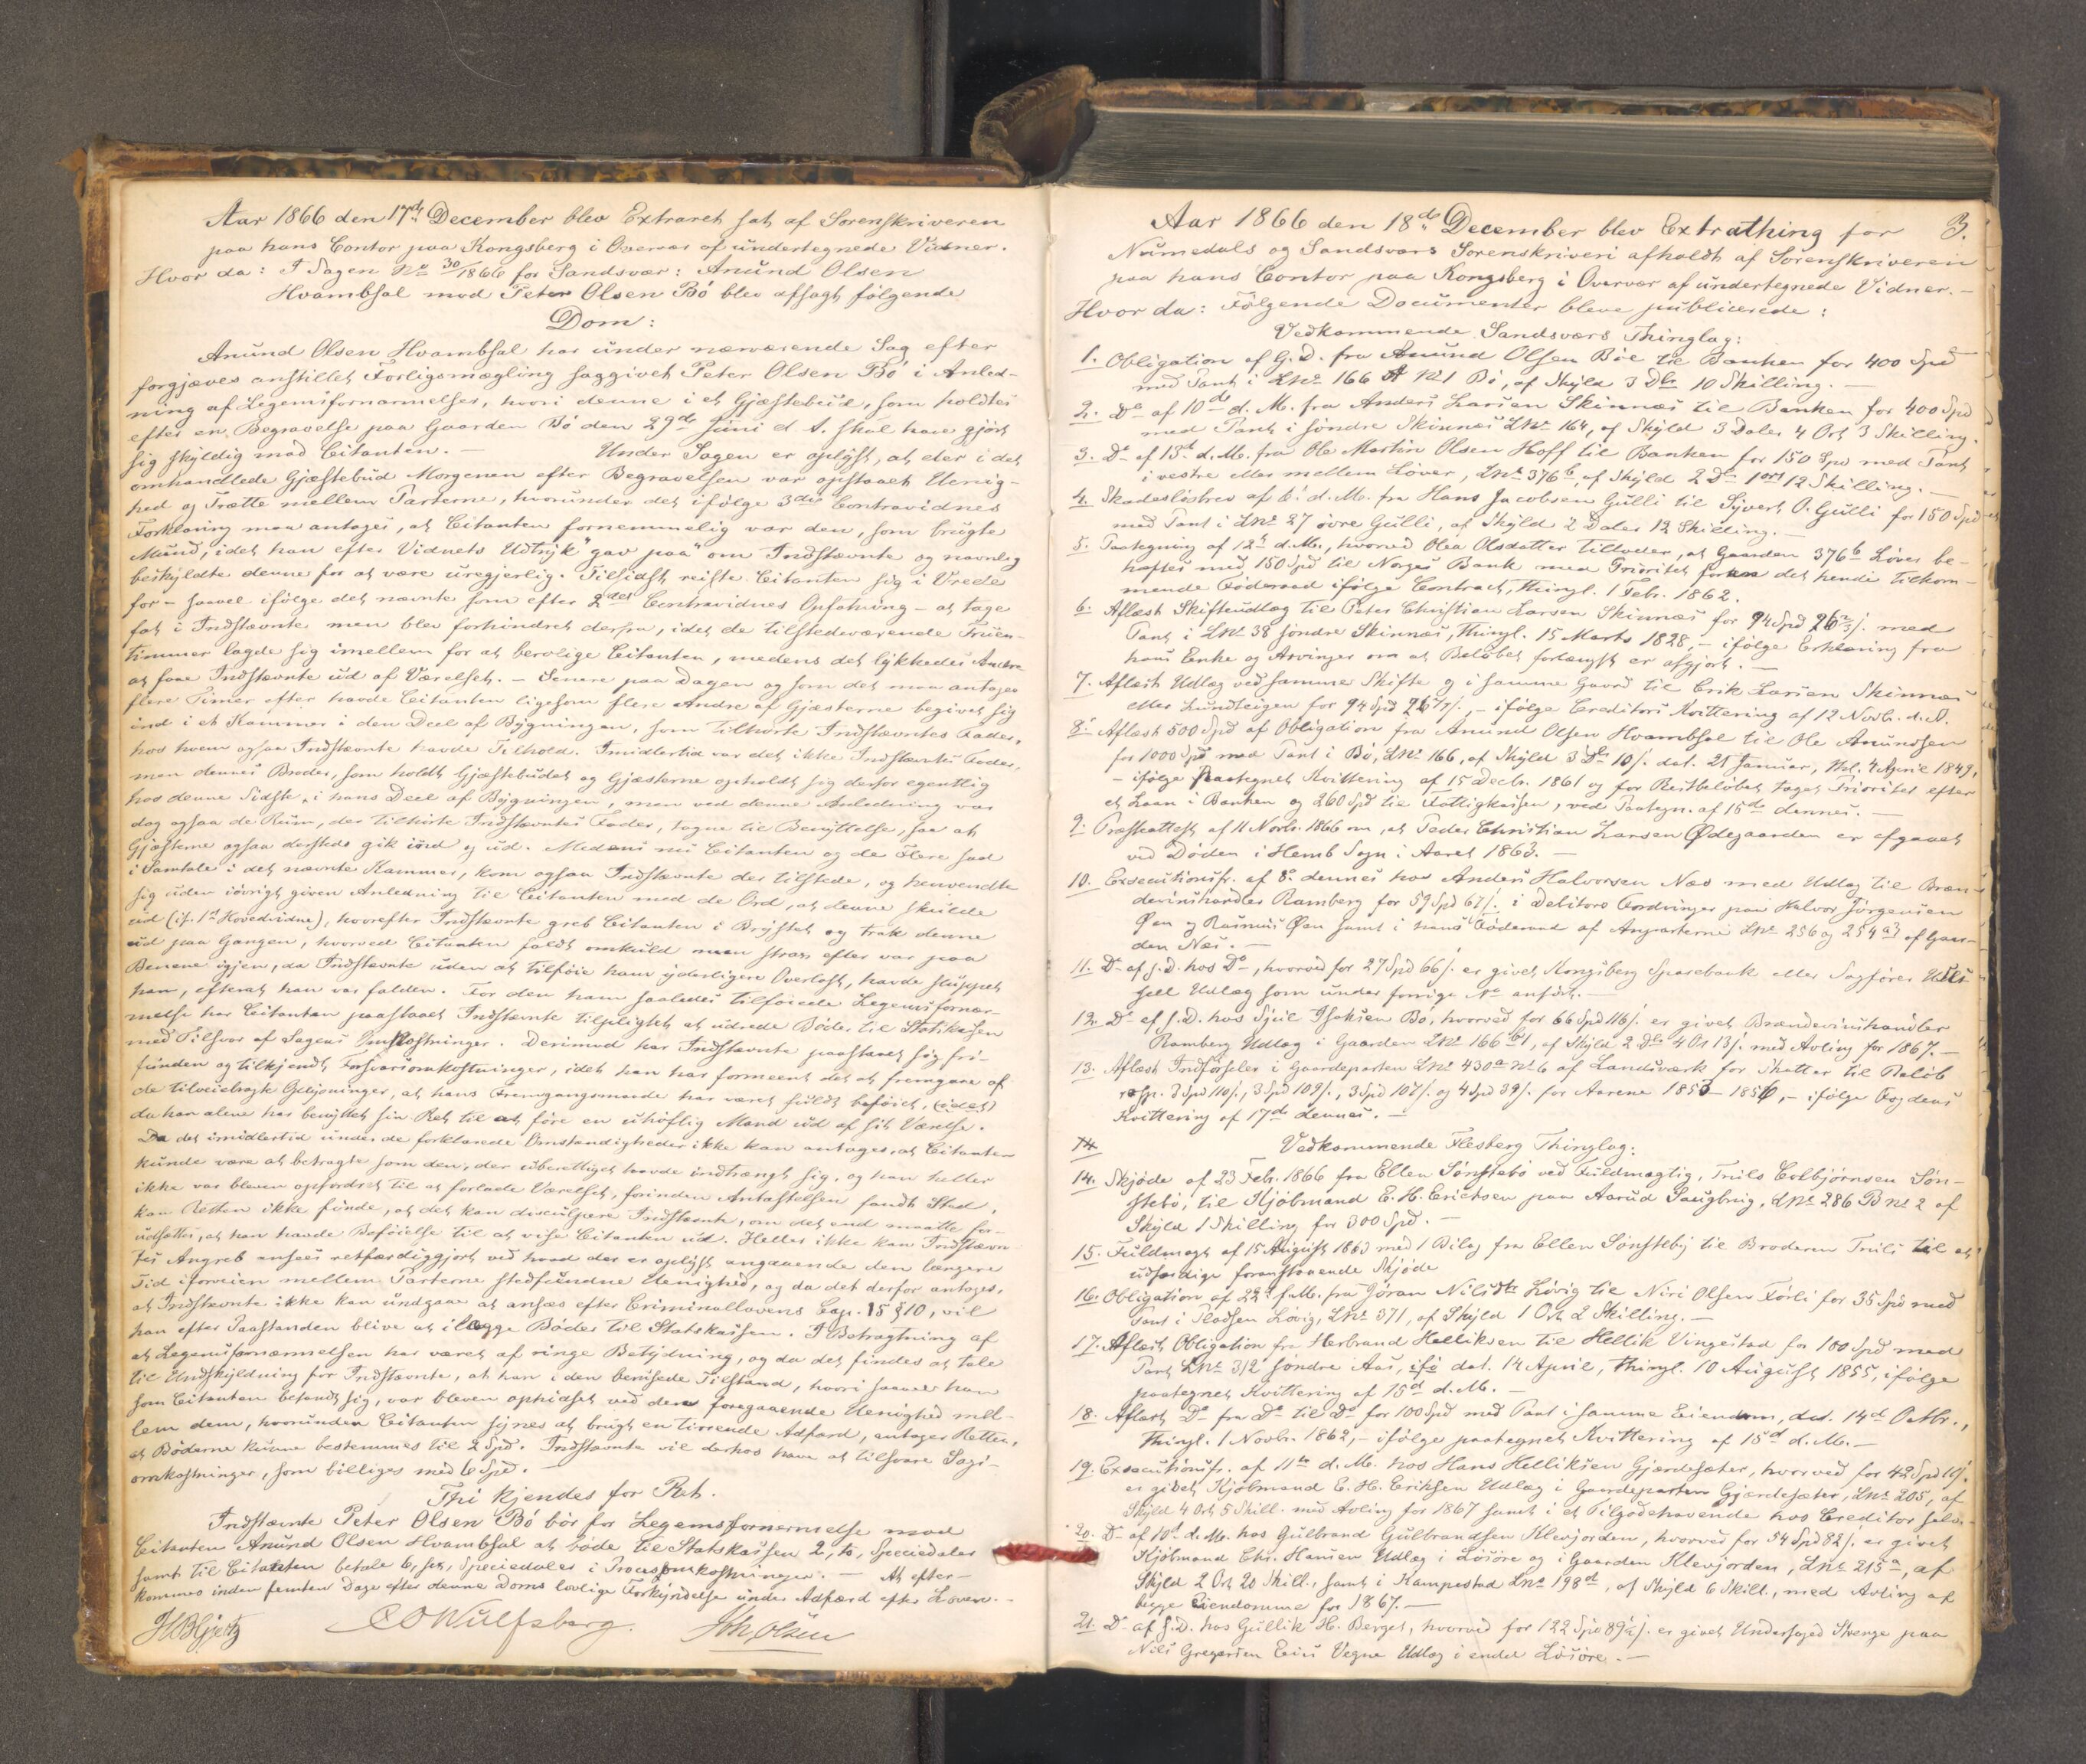 Aar 1866 den 17de December blev Extraret sat af Sorenskriveren
paa hans Contor paa Kongsberg i Overvær af undertegnede Vidner.
Hvor da: I Sagen No 30/1866 for Sandsvær: Anund Olsen
Hvambsal mod Peter Olsen Bö blev afsagt følgende
Dom:
Anund Olsen Hvambsal har under nærværende Sag efter
forgjæves anstillet Forligsmægling saggivet Peter Olsen Bö i Anled-
ning af Legemsfornærmelser, hvori denne i et Gjæstebud, som holdtes
efter en Begravelse paa Gaarden Bö den 29de Juni d. A. skal have gjort
sig skyldig mod Citanten. — Under Sagen er oplyst, at der i det
omhandlede Gjæstebud Morgenen efter Begravelsen var opstaaet Uenig-
hed og Trætte mellem Parterne, hvorunder det ifølge 3die Contravidnes
Forklaring maa antages, at Citanten fornemmelig var den, som brugte
Mund, idet han efter Vidnets Udtryk "gav paa" om Indstævnte og navnlig
beskyldte denne for at være uregjerlig. Tilsidst reiste Citanten sig i Vrede
for - saavel ifølge det nævnte som efter 2det Contravidnes Opfatning - at tage
fat i Indstævnte men blev forhindret derfra, idet de tilstedeværende Fruen-
timmer lagde sig imellem for at berolige Citanten, medens det lykkedes Andre
at faae Indstævnte ud af Værelset. - Senere paa Dagen og som det maa antages
flere Timer efter havde Citanten ligesom flere Andre af Gjæsterne begivet sig
ind i et Kammer i den Deel af Bygningen, som tilhørte Indstævntes Fader,
hos hvem ogsaa Indstævnte havde Tilhold. Imidlertid var det ikke Indstævntes Fader,
men dennes Broder, som holdt Gjæstebudet og Gjæsterne opholdt sig derfor egentlig
hos denne Sidste, i hans Deel af Bygningen, men ved denne Anledning var
dog ogsaa de Rum, der tilhørte Indstævntes Fader, tagne til Benyttelse, saa at
Gjæsterne ogsaa dersteds gik ind og ud. Medens nu Citanten og de Flere sad
i Samtale i det nævnte Kammer, kom ogsaa Indstævnte der tilstede, og henvendte
sig uden iövrigt given Anledning til Citanten med de Ord, at denne skulde
ud (cf. 1ste Hovedvidne), hvorefter Indstævnte greb Citanten i Brystet og trak denne
ud paa Gangen, hvorved Citanten faldt omkuld men strax efter var paa
Benene igjen, da Indstævnte uden at tilføie ham yderligere Overlast, havde sluppet
ham, efterat han var falden. For den ham saaledes tilføiede Legemsfornær-
melse har Citanten paastaaet Indstævnte tilpligtet at udrede Bøder til Statskassen
med Tilsvar af Sagens Omkostninger. Derimod har Indstævnte paastaaet sig fri-
funden og tilkjendt Forsvarsomkostninger, idet han har formeent det at fremgaae af
de tilveiebragte Oplysninger, at hans Fremgangsmaade har været fuldt beføiet, (idet)
da han alene har benyttet sin Ret til at före en uhöflig Mand ud af sit Værelse.
Da det imidlertid under de forklarede Omstændigheder ikke kan antages, at Citanten
kunde være at betragte som den, der uberettiget havde indtrængt sig, og han heller
ikke var bleven opfordret til at forlade Værelset, forinden Antastelsen fandt Sted,
kan Retten ikke finde, at det kan disculpere Indstævnte, om det end maatte for-
udsættes, at han havde Beføielse til at vise Citanten ud. Heller ikke kan Indstævn-
tes Angreb ansees retfærdiggjort ved hvad der er oplyst angaaende den længere
Tid iforveien mellem Parterne stedfundne Uenighed, og da det derfor antages,
at Indstævnte ikke kan undgaae at ansees efter Criminallovens Cap. 15 § 10, vil
han efter Paastanden blive at ilægge Bøder til Statskassen. I Betragtning af
at Legemsfornærmelsen har været af ringe Betydning, og da det findes at tale
til Undskyldning for Indstævnte, at han i den berusede Tilstand, hvori saavel han
som Citanten befandt sig, var bleven ophidset ved den foregaaende Uenighed mel-
lem dem, hvorunder Citanten synes at brugt en tirrende Adfærd, antager Retten,
at Böderne kunne bestemmes til 2 Spd. Indstævnte vil derhos have at tilsvare Sags-
omkostninger, som billiges med 6 Spd. -
Thi kjendes for Ret.
Indstævnte Peter Olsen Bö bör for Legemsfornærmelse mod
Citanten Anund Olsen Hvambsal at böde til Statskassen 2, to, Speciedaler
samt til Citanten betale 6, sex, Speciedaler i Procesomkostninger. — At efter-
kommes inden femten Dage efter denne Doms lovlige Forkyndelse under Adfærd efter Loven. -
C O Wulfsberg. Joh. Olsen
3.
Aar 1866 den 18de December blev Extrathing for
Numedals og Sandsværs Sorenskriveri afholdt af Sorenskriveren
paa hans Contor paa Kongsberg i Overvær af undertegnede Vidner. -
Hvor da: Følgende Documenter bleve publicerede:
Vedkommende Sandsværs Thinglag:
1. Obligation af G. D. fra Anund Olsen Böe til Banken for 400 Spd
med Pant i LNo 166 A No 1 Bö, af Skyld 3 Dlr 10 Skilling. —
2. Do af 10de d. M. fra Anders Larsen Skinnæs til Banken for 400 Spd
med Pant i søndre Skinnæs LNo 164, af Skyld 3 Daler 4 Ort 3 Skilling.
3. Do af 13d d. M. fra Ole Martin Olsen Hoff til Banken for 150 Spd med Pant
i vestre eller mellem Löver, LNo 376b, af Skyld 2 Dlr 1 ort 12 Skilling. —
4. Skadeslösbrev af 6. d. M. fra Hans Jacobsen Gulli til Syvert O. Gulli for 150 Spd
med Pant i LNo 27 övre Gulli, af Skyld 2 Daler 12 Skilling. —
5. Paategning af 12t d. M., hvorved Olea Olsdatter tillader, at Gaarden 376b Löver be-
hæftes med 150 Spd til Norges Bank med Prioritet foran det hende tilkom-
mende Föderaad ifølge Contract, thingl. 1 Febr. 1862.
6. Aflæst Skifteudlæg til Peter Christian Larsen Skinnæs for 94 Spd 26 2/3 s. med
Pant i LNo 38 söndre Skinnæs, thingl. 15 Marts 1828, - ifølge Erklæring fra
hans Enke og Arvinger om at Beløbet forlængst er afgjort. —
7. Aflæst Udlæg ved samme Skifte og i samme Gaard til Erik Larsen Skinnæs
eller Lundteigen for 94 Spd, - ifølge Creditors Kvittering af 12 Novb. d. A.
8. Aflæst 500 Spd af Obligation fra Anund Olsen Hvambsal til Ole Anundsen
for 1000 Spd med Pant i Bö, LNo 166, af Skyld 3 Dlr 10 s. dat. 21 Januar, thl. 4 April 1849,
- ifølge paategnet Kvittering af 15 Decb. 1861 og for Restbeløbet taget Prioritet efter
et Laan i Banken og 260 Spd til Fattigkassen, ved Paategn. af 15de dennes. —
9. Præsteattest af 11 Novb. 1866 om, at Peder Christian Larsen Ødegaarden er afgaaet
ved Døden i Hemb Sogn i Aaret 1863. —
10. Executionsfr. af 8de dennes hos Anders Halvorsen Næs med Udlæg til Bræn-
devinshandler Ramberg for 59 Spd 67 s. i Debitors Fordringer paa Halvor Jörgensen
Øen og Rasmus Øen samt i hans Föderaad af Anparterne LNo 256 og 254 a3 af Gaar-
den Næs. —
11. Do af s. D. hos Do, hvorved for 27 Spd 66 s. er givet Kongsberg Sparebank eller Sagförer
Udlæg som under forrige No anfört. —
12. Do af s. D. hos Isaksen Bö, hvorved for 66 Spd 116 s. er givet Brændevinshandler
Ramberg Udlæg i Gaarden LNo 166 b1, af Skyld 2 Dlr 4 Ort 13 s. med Avling for 1867. —
13. Aflæst Indførsler i Gaardeparten LNo 430a No 6 af Landsværk for Skatter til Beløb
resp. 3 Spd 110 s., 3 Spd 109 s., 3 Spd 107 s. og 4 Spd 39 s. for Aarene 1853 - 1856, - ifølge Fogdens
Kvittering af 17de dennes. —
14
Vedkommende Flesberg Thinglag:
14. Skjöde af 23 Febr. 1866 fra Ellen Sönstebö ved Fuldmægtig, Truls Colbjörnsen Sön-
stebö, til Kjöbmand E. H. Erichsen paa Aarud Saugbrug, LNo 286 B No 2 af
Skyld 1 Skilling for 300 Spd. —
15. Fuldmagt af 15 August 1863 med 1 Bilag fra Ellen Sönsteby til Broderen Truls til at
udfærdige foranstaaende Skjöde
16. Obligation af 22d f. M. fra Göran Nilsdtr Lövig til Niri Olsen Förli for 35 Spd med
Pant i Pladsen Lövig, LNo 371, af Skyld 1 Ort 2 Skilling. —
17. Aflæst Obligation fra Herbrand Helliksen til Hellik Vingestad for 100 Spd med
Pant LNo 312 söndre Aas, dat. 14 April, thingl. 10 August 1855, ifølge
paategnet Kvittering af 15d d. M. —
18. Aflæst Do fra Do til Do for 100 Spd med Pant i samme Eiendom, dat. 14d Octbr.,
thingl. 1 Novbr. 1862, - ifølge paategnet Kvittering af 15d d. M. —
19. Executionsfr. af 11te d. M. hos Hans Helliksen Gjærdesæter, hvorved for 42 Spd
er givet Kjöbmand E. H. Eriksen Udlæg i Gaardeparten Gjærdesæter, LNo 205, af
Skyld 4 Ort 5 Skill. med Avling for 1867 samt i et Tilgodehavende hos Creditor selv.
20. Do af 10d d. M. hos Gulbrand Gulbrandsen Klevjorden, hvorved for 54 Spd 82 s. er givet
Kjöbmand Chr. Hansen Udlæg i Lösöre og i Gaarden Klevjorden, LNo 215a, af
Skyld 2 Ort 20 Skill., samt i Kampestad LNo 198d, af Skyld 6 Skill., med Avling af
begge Eiendomme for 1867. —
21. Do af s. D. hos Gullik H. Berget, hvorved for 122 Spd 89 1/2 s. er givet Underfoged Skenge paa
Nils Gregersen Eies Vegne Udlæg i endel Lösöre. —